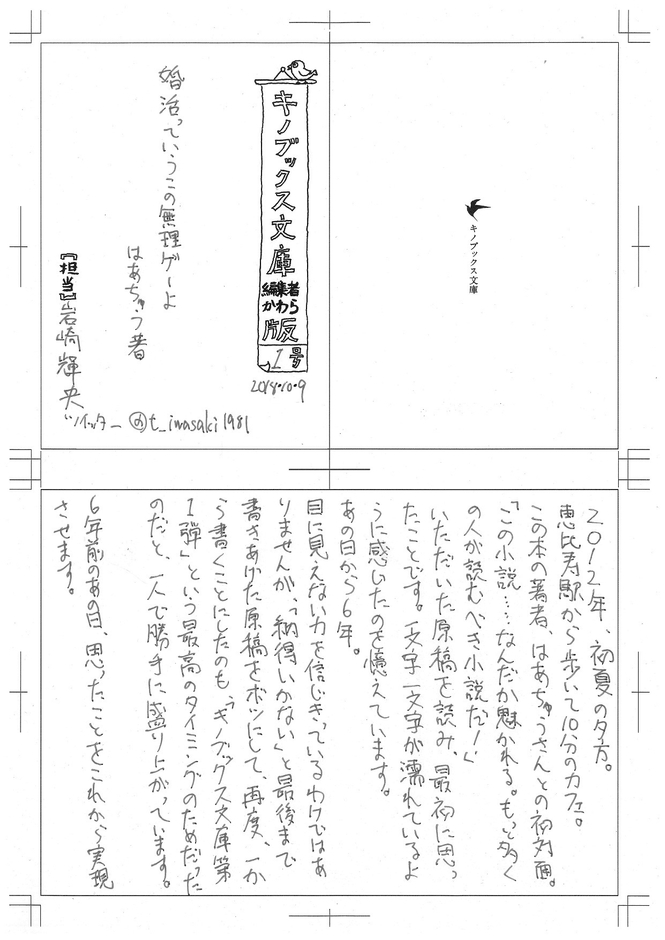 キノブックス文庫
キノブックス文庫
編集者
かわら
版
1号
2018.10.9
婚活っていうこの無理ゲーよ
はあちゅう著
『担当』岩崎輝央
ツイッター @t_iwasaki1981
2012年、初夏の夕方。
恵比寿駅から歩いて10分のカフェ。
この本の著者、はあちゅうさんとの初対面。
「この小説……なんだか魅かれる。もっと多く
の人が読むべき小説だ!」
いただいた原稿を読み、最初に思っ
たことです。一文字一文字が濡れているよ
うに感じたのを憶えています。
あの日から6年。
目に見えない力を信じきっているわけではあ
りませんが、「納得いかない」と最後まで
書きあげた原稿をボツにして、再度、一か
ら書くことにしたのも、「キノブックス文庫第
1弾」という最高のタイミングのためだった
のだと、一人で勝手に盛り上がっています。
6年前のあの日、思ったことをこれから実現
させます。